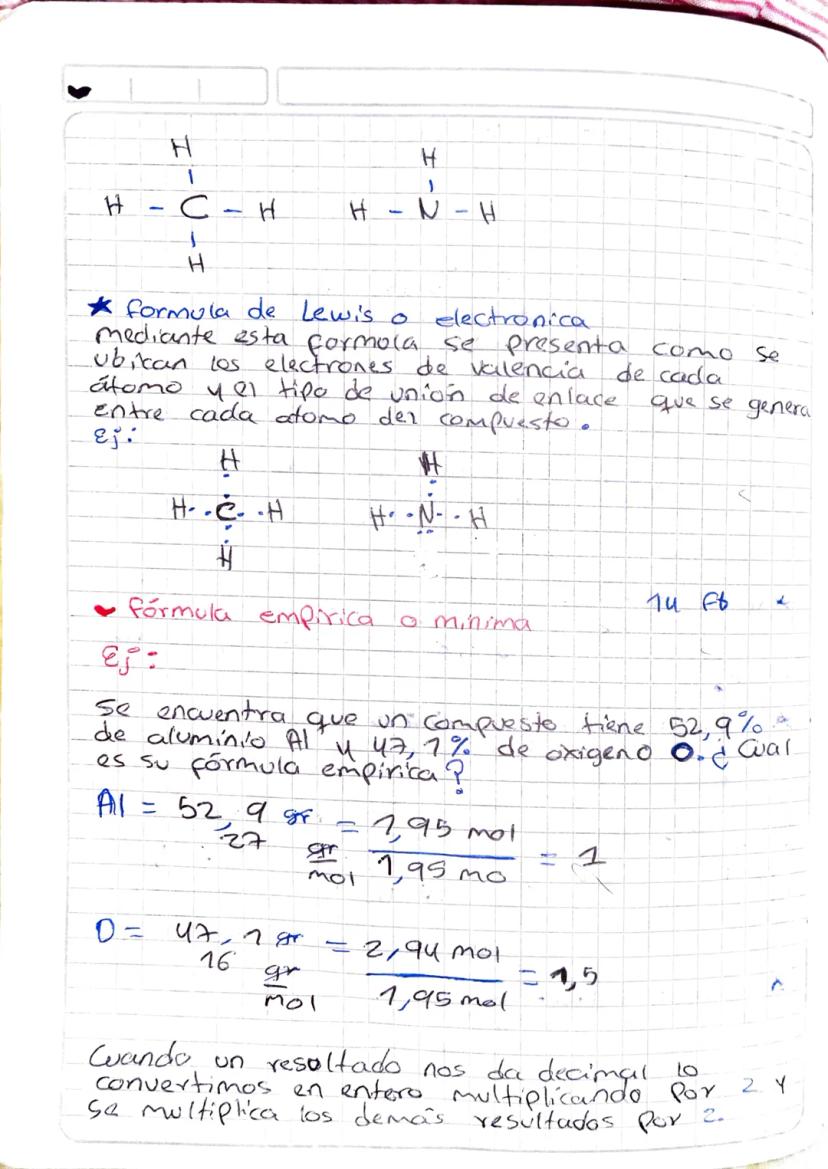 H H
H - C - H H - N - H
H
★ formula de Lewis o electronica
mediante esta formola se presenta como se
ubican los electrones de valencia de cada
átomo y el tipo de unión de enlace que se genera
entre cada atomo del compuesto.
Ej:
H H
H· ·C· ·H H· ·N· ·H
H
fórmula empirica o minima
Ej:
Se encuentra que un compuesto tiene 52,9%
de aluminio Al y 47,1% de oxigeno O. ¿Cual
es su fórmula empirica?
Al = 52,9 gr = 1,95 mol
27 gr 1,95 mo = 1
mol
O = 47,1 gr = 2,94 mol
16 gr 1,95 mol = 1,5
mol
Cuando un resultado nos da decimal lo
convertimos en entero multiplicando por 2 y
se multiplica los demás resultados por 2.